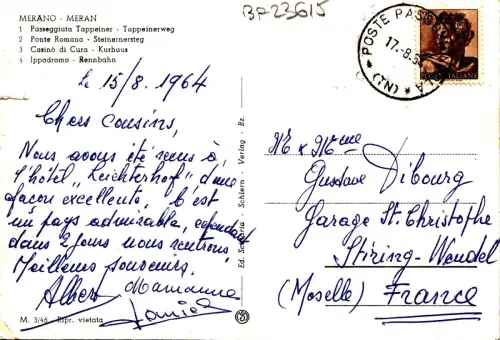 MERANO - MERAN
1 Passeggiata Tappeiner - Tappeinerweg
2 Ponte Romano - Steinernersteg
3 Casinò di Cura - Kurhaus
4 Ippodromo - Rennbahn
BP23615
le 15/8. 1964
Chers Cousins,
Nous avons été reçus à
l'hôtel „Leichterhof" d'une
façon excellente. C'est
un pays admirable, cependant
dans 2 jours nous rentrons.
Meilleurs souvenirs.
Albert Marianne
Daniel
M. 3/46 Ripr. vietata
Ed. Schlern - Verlag - Bz.
POSTE PASS
17.-8.
(TN)
POSTE ITALIANE
Mr & Mme
Gustave Dibourg
Garage St. Christophe
Stiring-Wendel
(Moselle) France